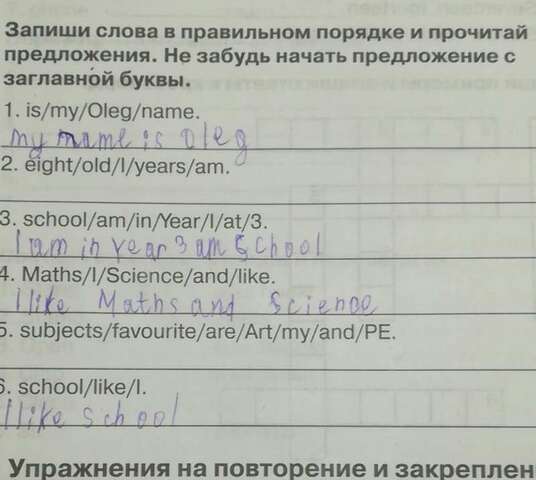 Запиши слова в правильном порядке и прочитай
предложения. Не забудь начать предложение с
заглавной буквы.
1. is/my/Oleg/name.
my name is Oleg
2. eight/old/I/years/am.
3. school/am/in/Year/I/at/3.
I am in year 3 am school
4. Maths/I/Science/and/like.
I like Maths and Science
5. subjects/favourite/are/Art/my/and/PE.
6. school/like/I.
I like school
Упражнения на повторение и закреплен